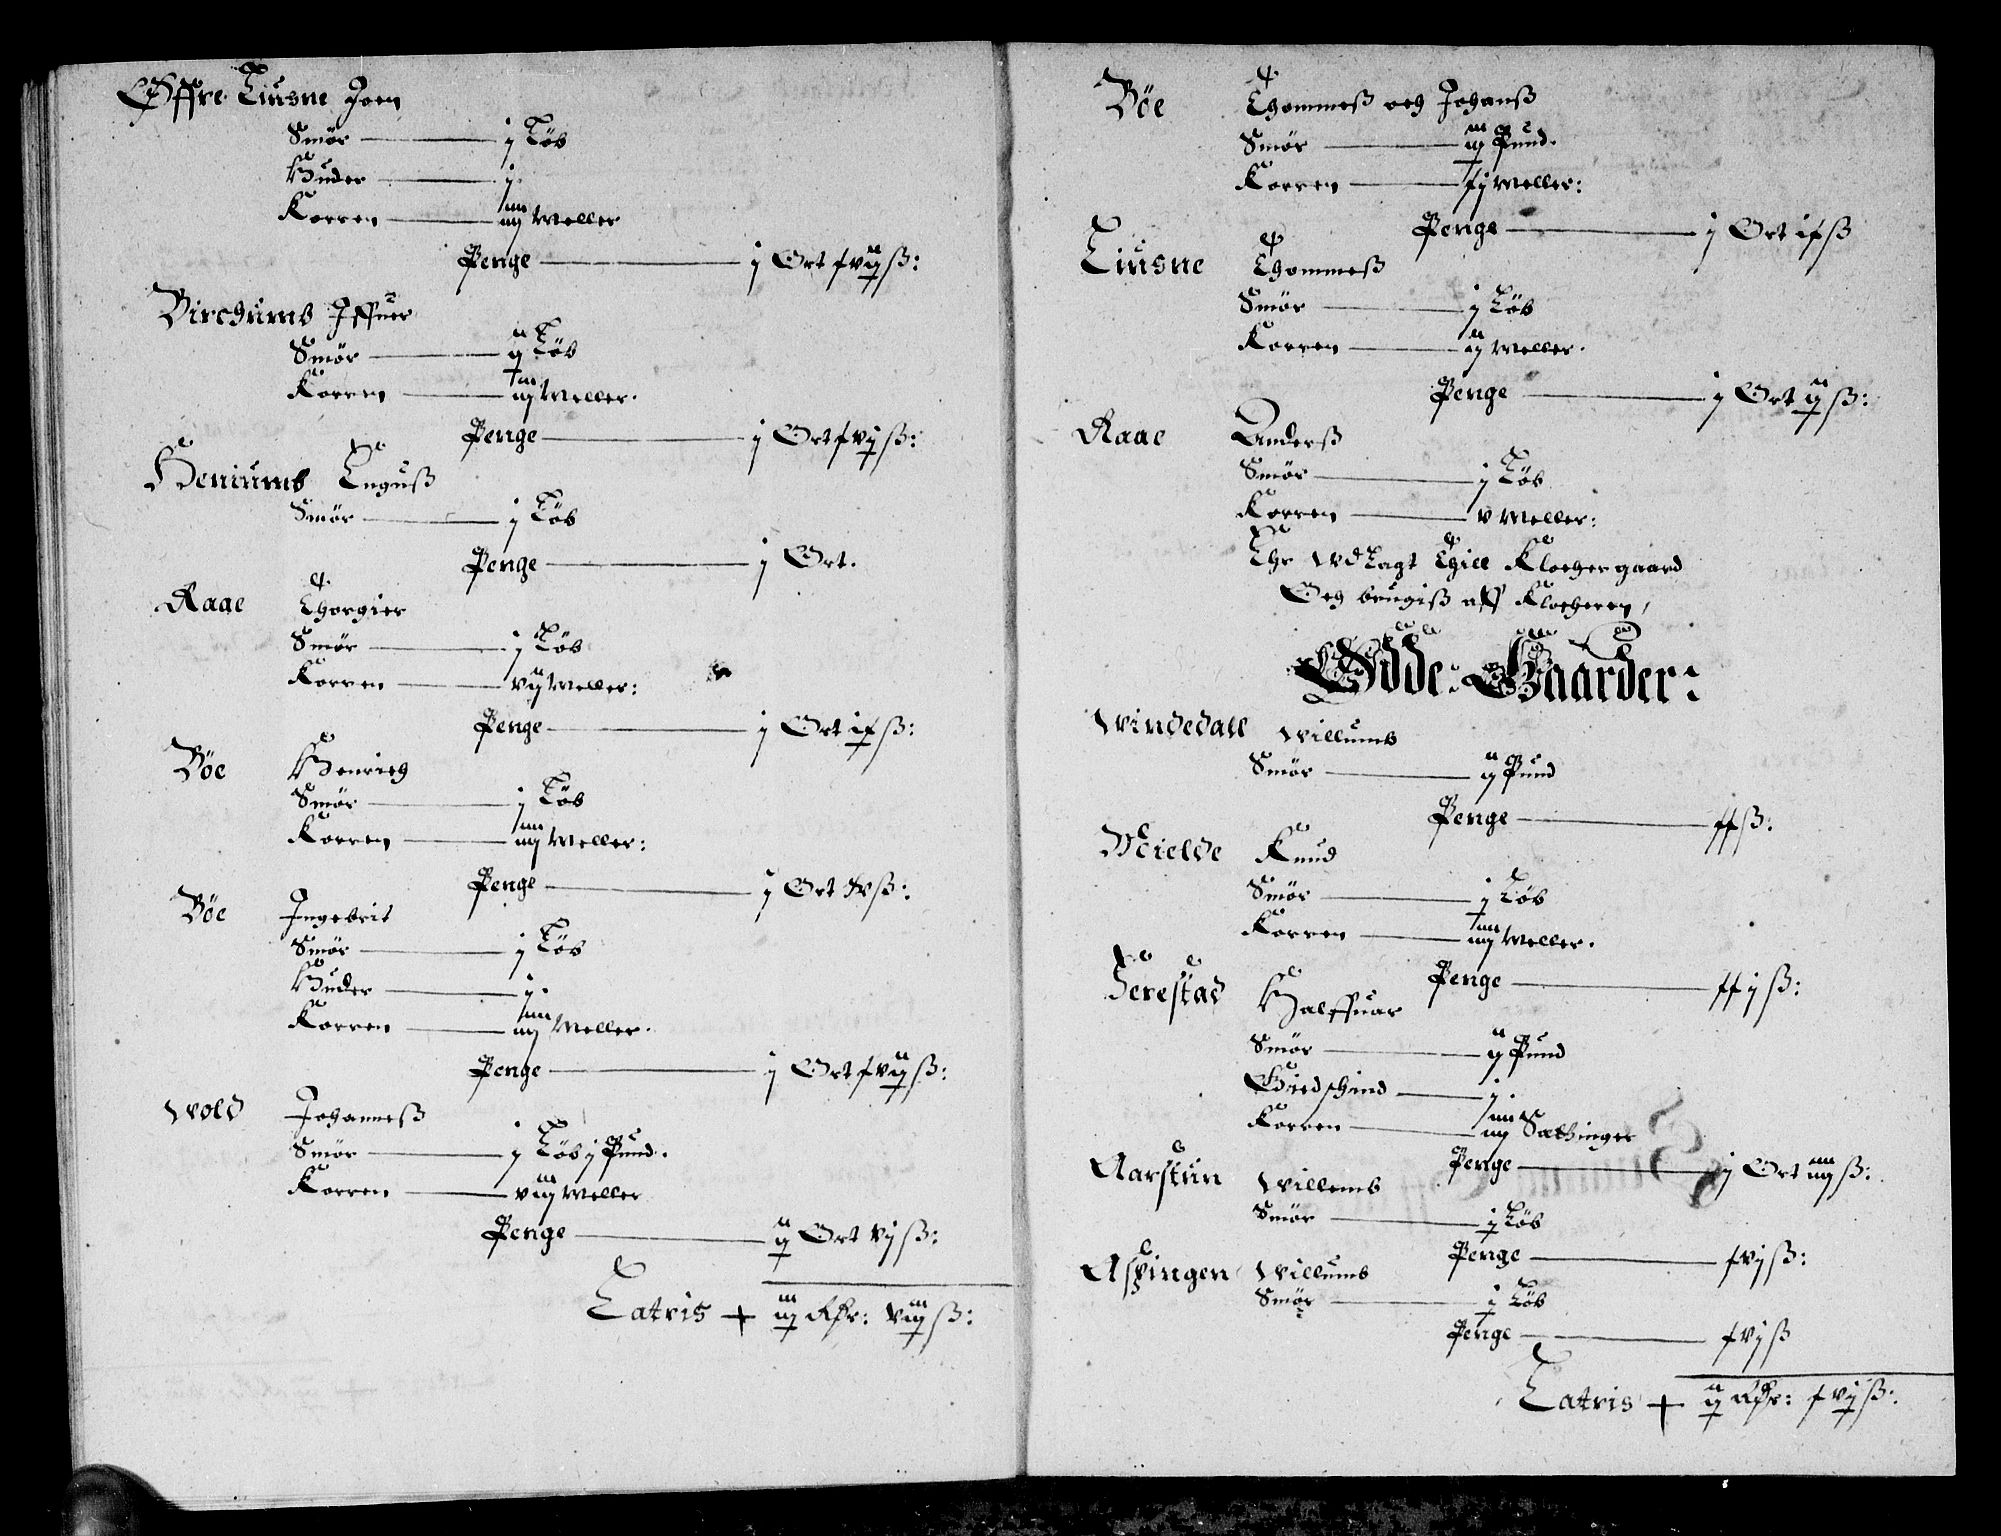 Øffre Liusne Joen
Smør — j Løb
Huder — j
Korren — iiij Meller
Penge — j Ort xviij ß:
Birchumb Iffuer
Smør — ij Løb
Korren — Meller.
Penge — j Ort xvj ß:
Heniumb Lnguß
Smør — j Løb
Penge — j Ort.
Raae Thorgier
Smør — j Løb
Korren — vij Meller:
Penge — j Ort ix ß:
Böe Henrich
Smør — j Løb
Korren — iiij Meller:
Penge — j Ort xv ß:
Böe Ingebrit
Smør — j Løb
Huder — j.
Korren — iiij Meller.
Penge — j Ort xvij ß:
Wold Johanneß
Smør — j Løb j Pund.
Korren — viij Meller
Penge — ij Ort vj ß:
Latris + iij Rdr: viij ß:
Böe Thommeß och Johanß
Smør — iij Pund.
Korren — xj Meller:
Penge — j Ort ix ß
Liusne Thommeß
Smør — j Løb
Korren — iij Meller.
Penge — j Ort ij ß:
Raae Anderß
Smør — j Løb
Korren — v Meller:
Ehr udLagt Thill Klocher gaard
Och brugiß aff Klocheren,
Ødde: Gaarder:
Windedall Willumb
Smør — ij Pund
Penge — xx ß:
Meielde Knud
Smør — j Løb
Korren — iiij Meller.
Penge — xxj ß:
Serestad Halffuar
Smør — ij Pund
Giedschind — j.
Korren — iiij Sathinger
Penge — j Ort iiij ß:
Aarstun Willemb
Smør — j Løb
Penge — xvj ß:
Aspingen Willumb
Smør — j Løb
Penge — xvj ß
Latris + ij Rdr: xvj ß: